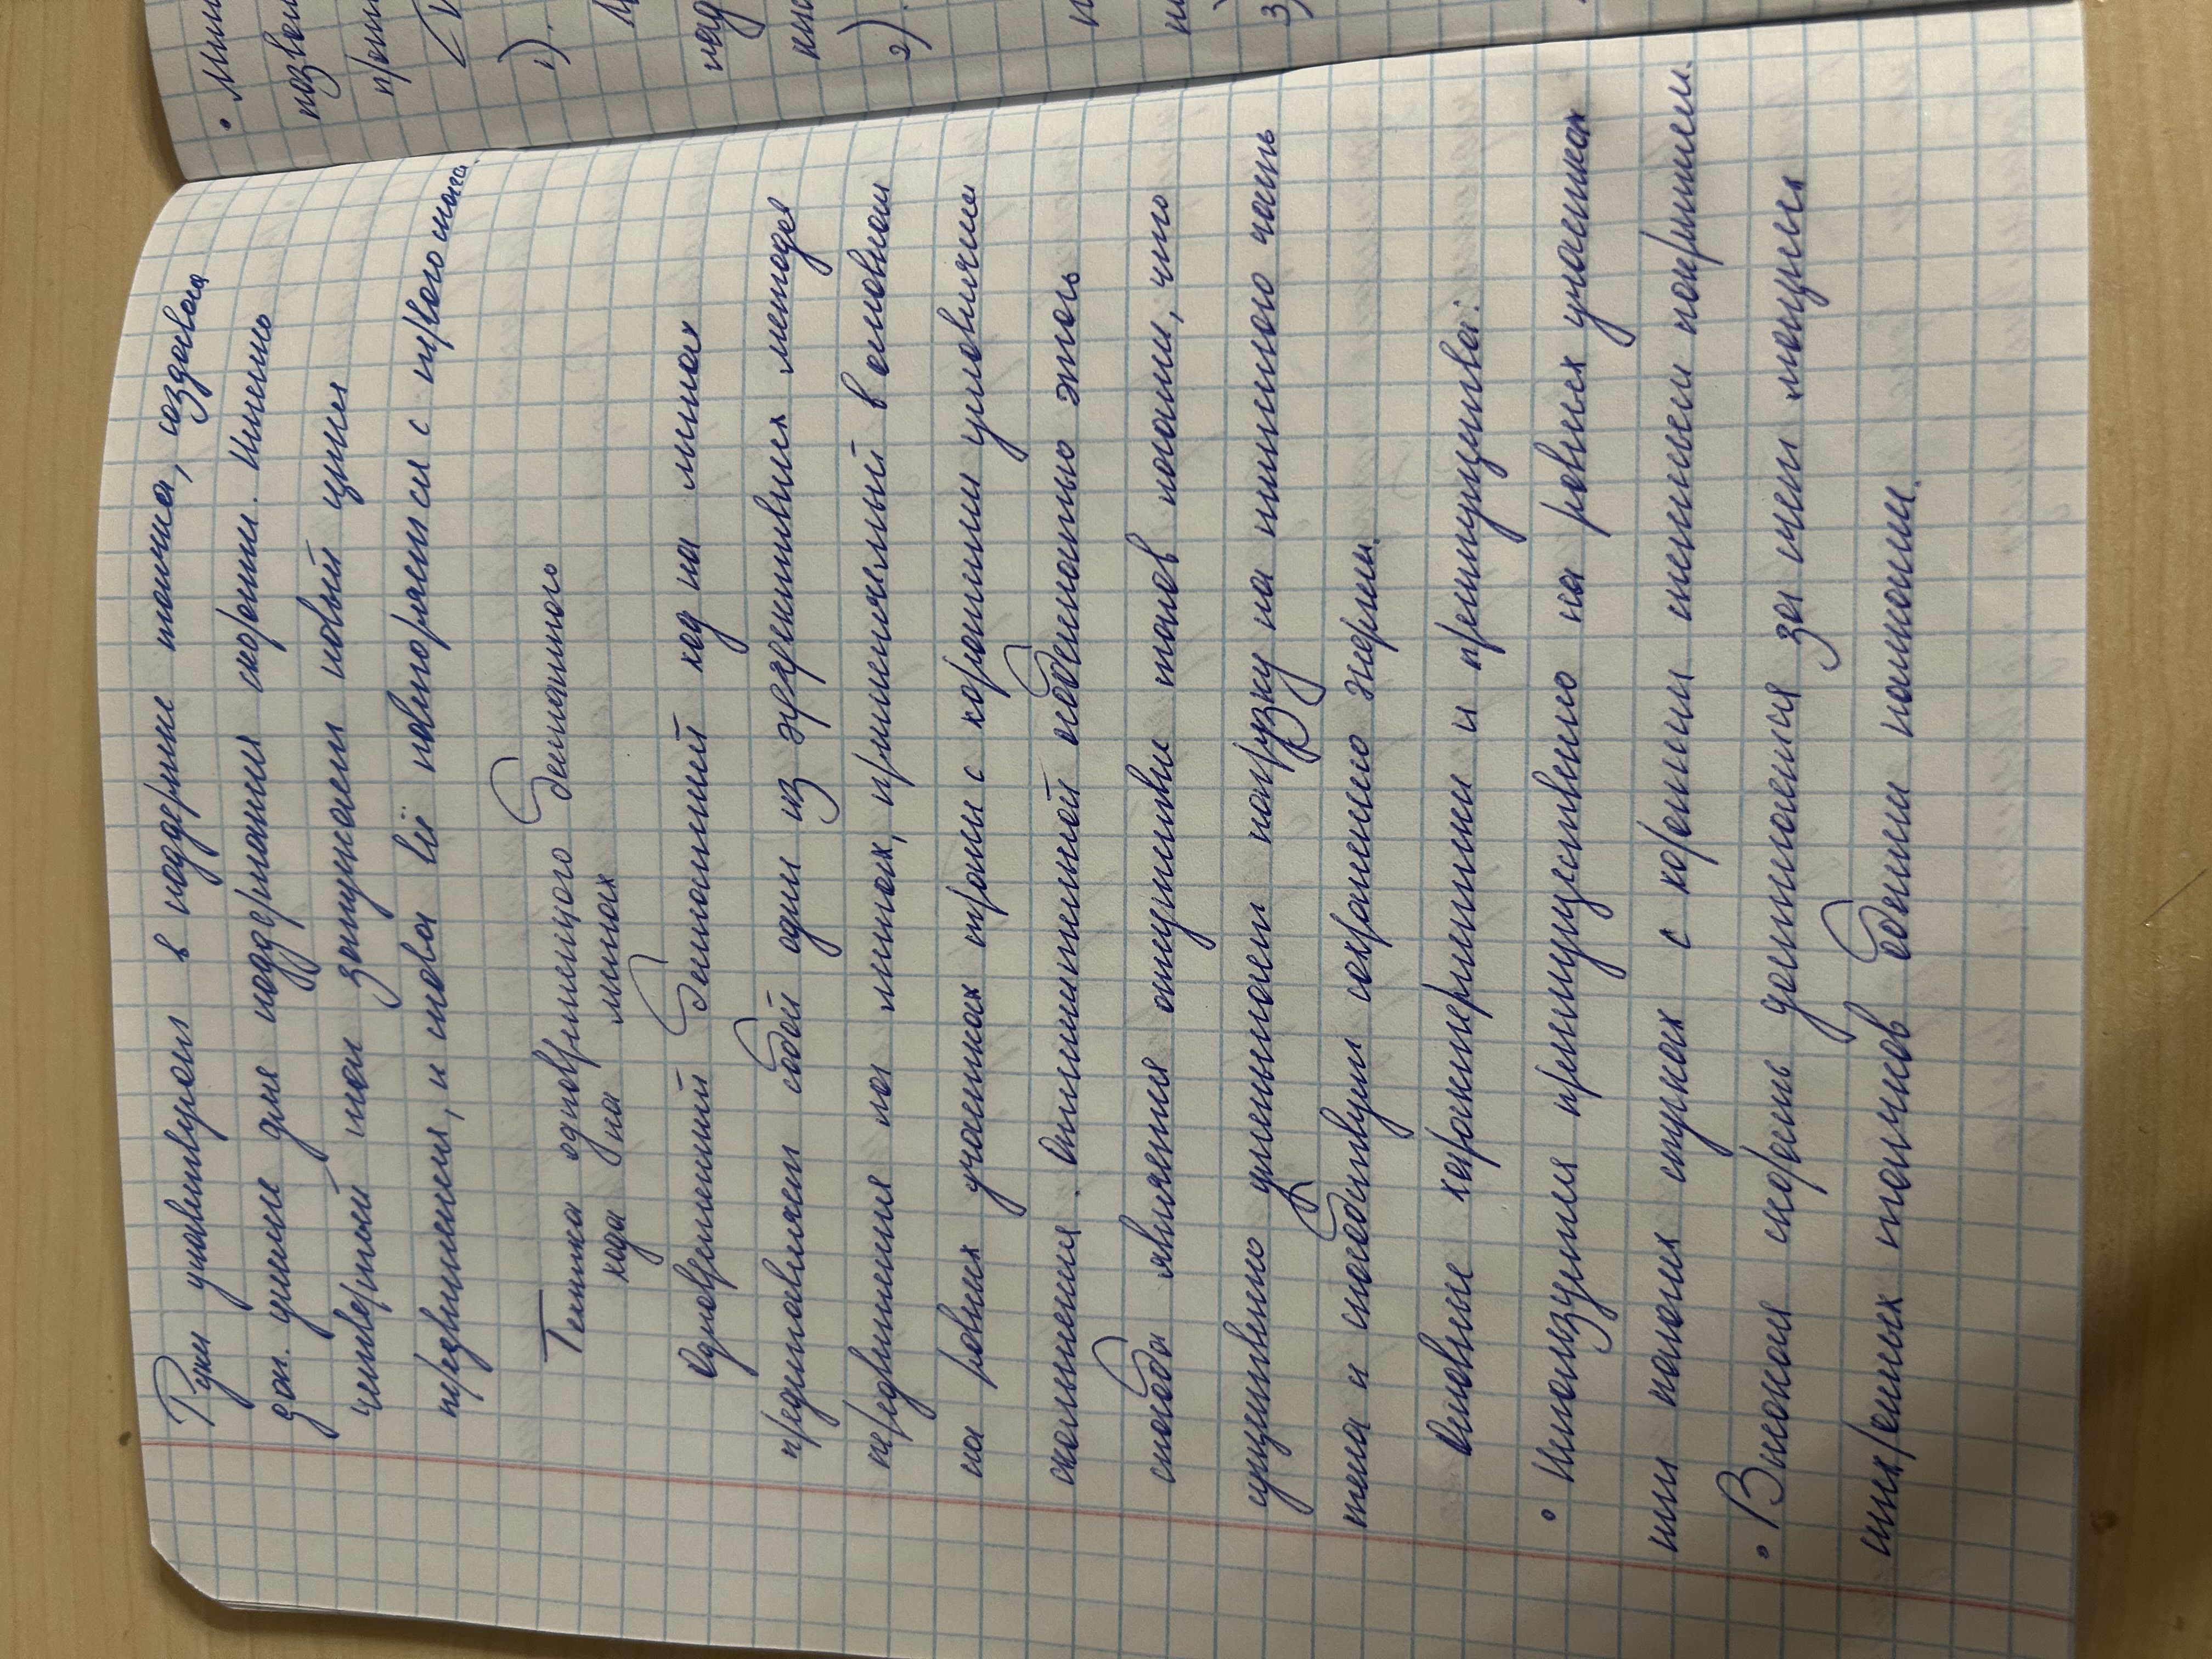 Руки участвуют в поддержке толчка, создавая
доп. усилие для поддержания скорости. Цикл
четвертый шаг запускает новый цикл
передвижения, и снова всё повторяется с первого шага.
Техника одновременного бесшажного
хода на лыжах
Одновременный бесшажный ход на лыжах
представляет собой один из эффективных методов
передвижения на лыжах, применяемый в основном
на ровных участках трассы с хорошими условиями
скольжения. Отличительной особенностью этого
способа является отсутствие шагов ногами, что
существенно уменьшает нагрузку на нижнюю часть
тела и способствует сохранению энергии.
Основные характеристики и преимущества:
• Используется преимущественно на ровных участках
или пологих спусках с хорошим лыжным покрытием.
• Высокая скорость достигается за счет мощных
синхронных толчков обеими палками.
• 
позвол
1).
2).
3)